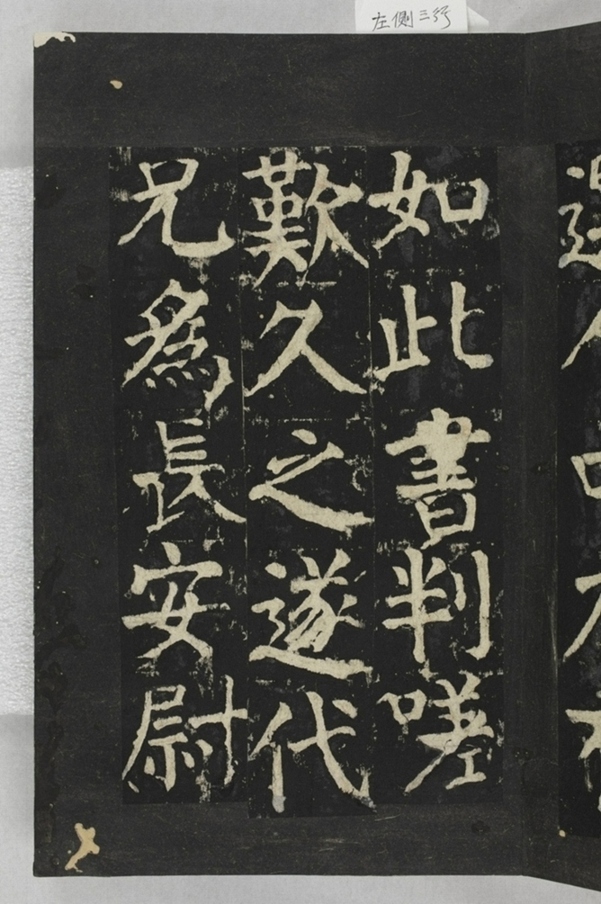 左側三行
如此書判嗟
歎久之遂代
兄為長安尉